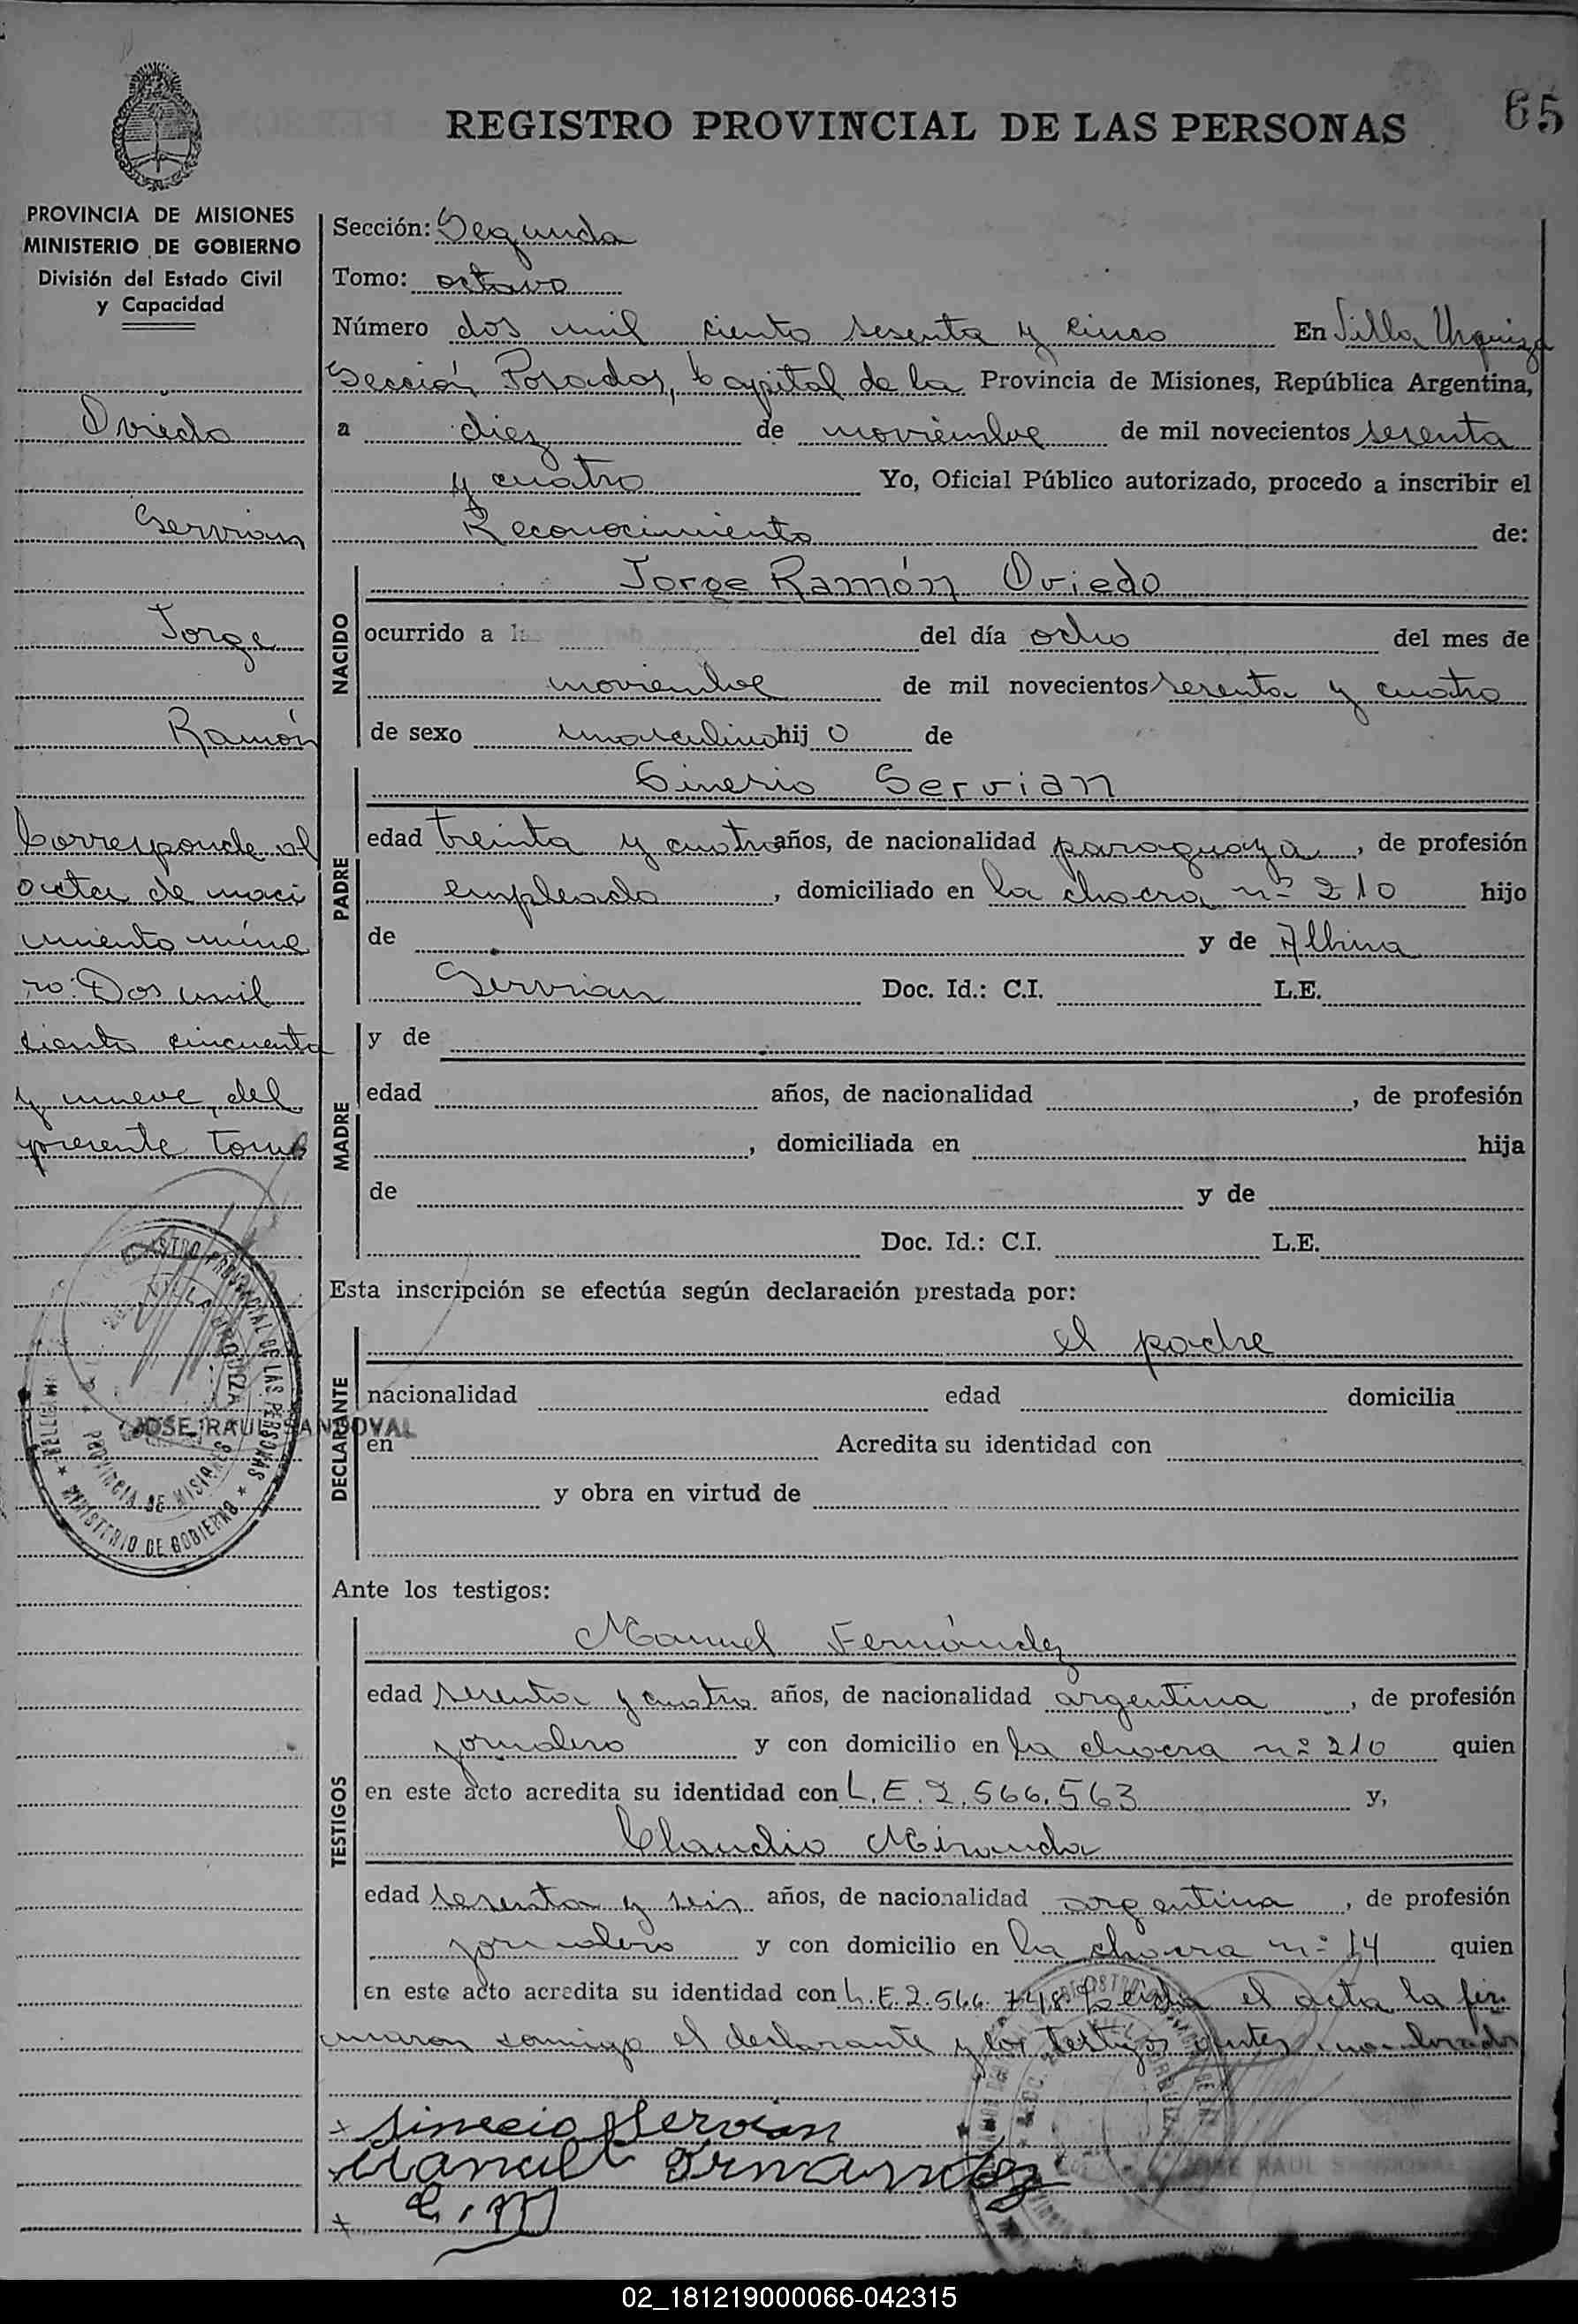 65
REGISTRO PROVINCIAL DE LAS PERSONAS
PROVINCIA DE MISIONES
MINISTERIO DE GOBIERNO
División del Estado Civil
y Capacidad
Oviedo
Servian
Jorge
Ramón
Corresponde al
acta de naci
miento núme
ro: Dos mil
ciento cincuenta
y nueve, del
presente tomo
REGISTRO PROVINCIAL DE LAS PERSONAS
VILLA URQUIZA
PROVINCIA DE MISIONES
MINISTERIO DE GOBIERNO
JOSE RAUL SANDOVAL
Sección: Segunda
Tomo: octavo
Número dos mil ciento sesenta y cinco En Villa Urquiza
Sección Posadas, Capital de la Provincia de Misiones, República Argentina,
a diez de noviembre de mil novecientos sesenta
y cuatro Yo, Oficial Público autorizado, procedo a inscribir el
Reconocimiento de:
NACIDO
Jorge Ramón Oviedo
ocurrido a las del día ocho del mes de
noviembre de mil novecientos sesenta y cuatro
de sexo masculino hij o de
PADRE
Sinesio Servian
edad treinta y cuatro años, de nacionalidad paraguaya, de profesión
empleado, domiciliado en la chacra nº 210 hijo
de y de Albina
Servian Doc. Id.: C.I. L.E.
MADRE
y de
edad años, de nacionalidad , de profesión
, domiciliada en hija
de y de
Doc. Id.: C.I. L.E.
Esta inscripción se efectúa según declaración prestada por:
DECLARANTE
el padre
nacionalidad edad domicilia
en Acredita su identidad con
y obra en virtud de
Ante los testigos:
TESTIGOS
Manuel Fernández
edad sesenta y cuatro años, de nacionalidad argentina, de profesión
jornalero y con domicilio en la chacra nº 210 quien
en este acto acredita su identidad con L.E. 2.566.563 y,
Claudio Miranda
edad sesenta y seis años, de nacionalidad argentina, de profesión
jornalero y con domicilio en la chacra nº 14 quien
en este acto acredita su identidad con L.E. 2.566.748. Leida el acta la fir
maron conmigo el declarante y los testigos antes nombrados
x Sinecio Servian
x Manuel Fernandez
x C. M
JOSE RAUL SANDOVAL
02_181219000066-042315